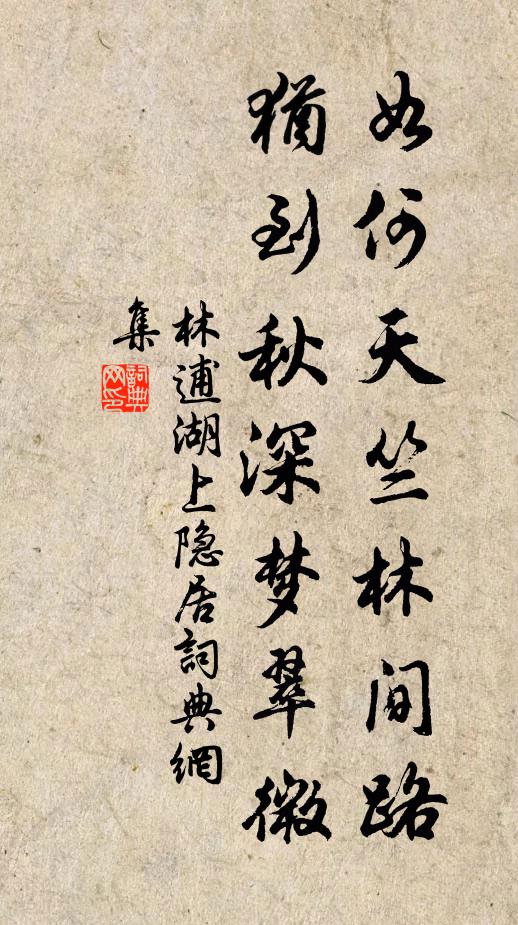 如何天竺林间路
犹到秋深梦翠微
林逋湖上隐居詞典網
集
詞典
网印